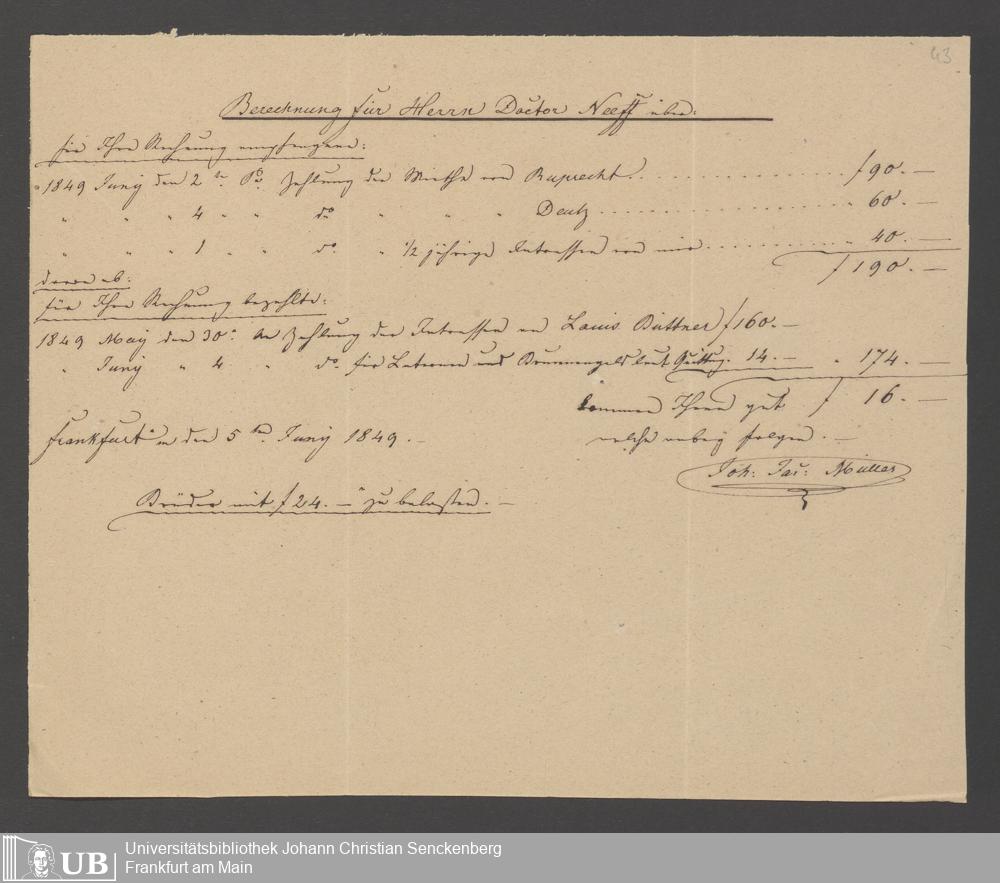 43
Berechnung für Herrn Doctor Neeff über:
für Ihre Rechnung empfangene:
1849 Juny den 2 tn Zahlung der Miethe von Ruprecht f 90. —
" " " 4 " " do " " " Deutz " 60. —
" " " 1 " " do " 1/2 jährige Intressen von mir " 40. —
f 190. —
davon ab:
für Ihre Rechnung bezahlte:
1849 May den 30 n An Zahlung der Intressen an Louis Büttner f 160. —
" Juny " 4 " do für Laternen und Brunnengeld laut Quittug. 14. — " 174. —
kommen Ihnen gut f 16. —
Frankfurt a m den 5 tn Juny 1849. — welche anbey folgen. —
Joh: Jac: Müller
mit f 24. — zu belasten. —
UB
Universitätsbibliothek Johann Christian Senckenberg
Frankfurt am Main